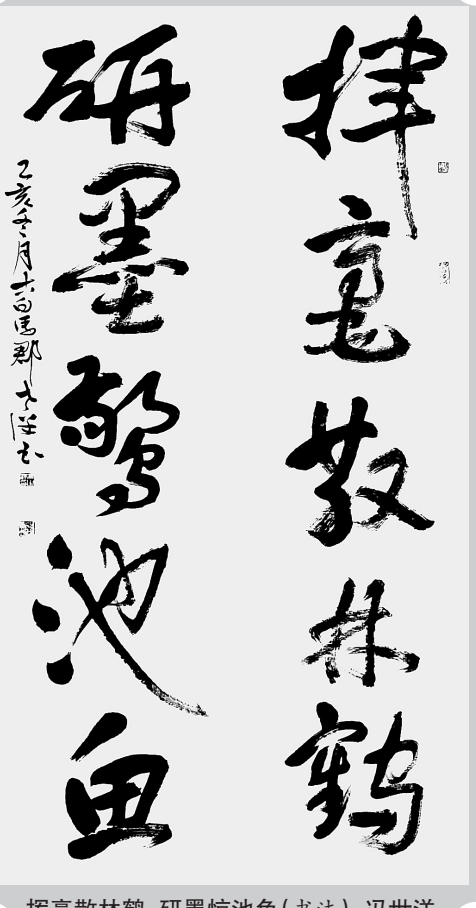 挥毫散林鹤
研墨惊池鱼
乙亥冬月
挥毫散林鹤 研墨惊池鱼(书法) 冯世洋